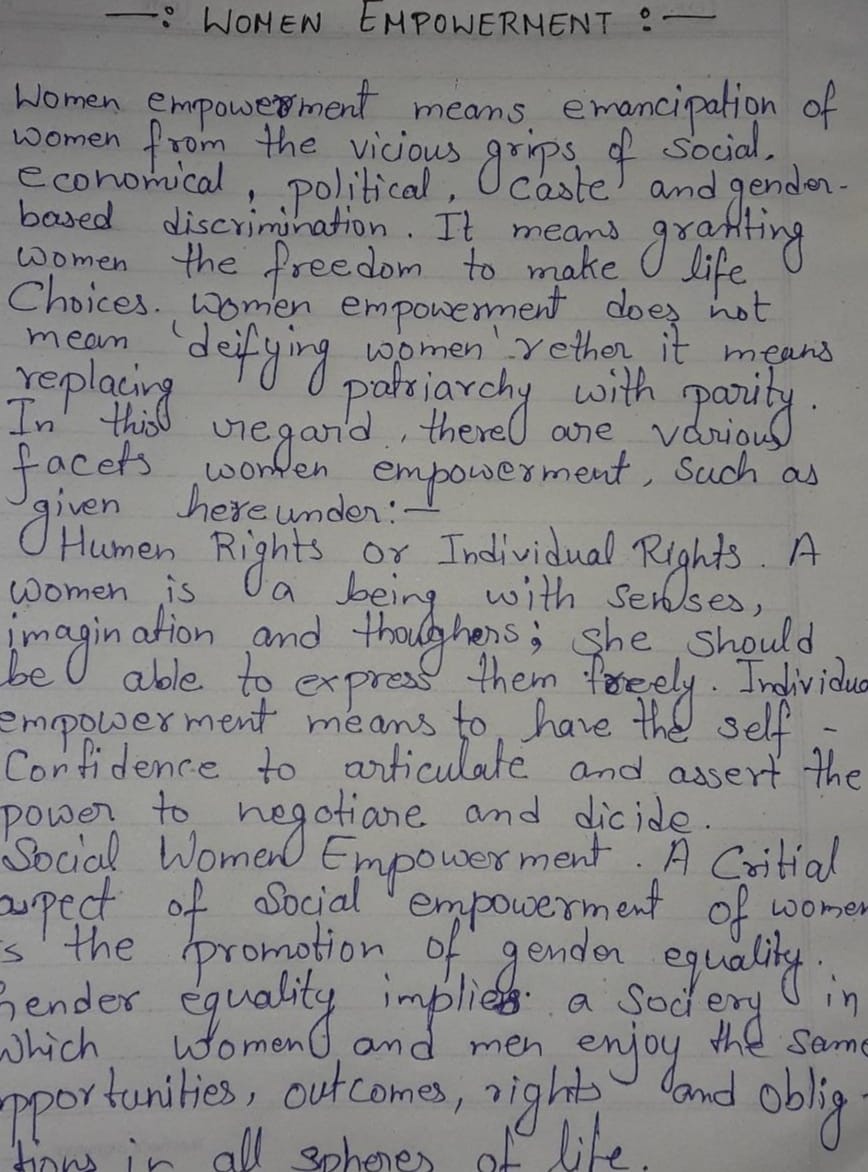 —: WOMEN EMPOWERMENT :—
Women empowerment means emancipation of
women from the vicious grips of social,
economical, political, caste and gender-
based discrimination. It means granting
women the freedom to make life
Choices. women empowerment does not
mean 'deifying women' rether it means
replacing patriarchy with parity.
In this regard, there are various
facets women empowerment, such as
given hereunder:—
Humen Rights or Individual Rights. A
women is a being with senses,
imagination and thoughers; she should
be able to express them freely. Individua
empowerment means to have the self-
Confidence to articulate and assert the
power to negotiare and dicide.
Social Women Empowerment. A Critial
aspect of Social empowerment of women
s the promotion of gender equality.
Gender equality implies a Sociery in
which women and men enjoy the same
pportunities, outcomes, rights and oblig-
tions in all spheres of life.